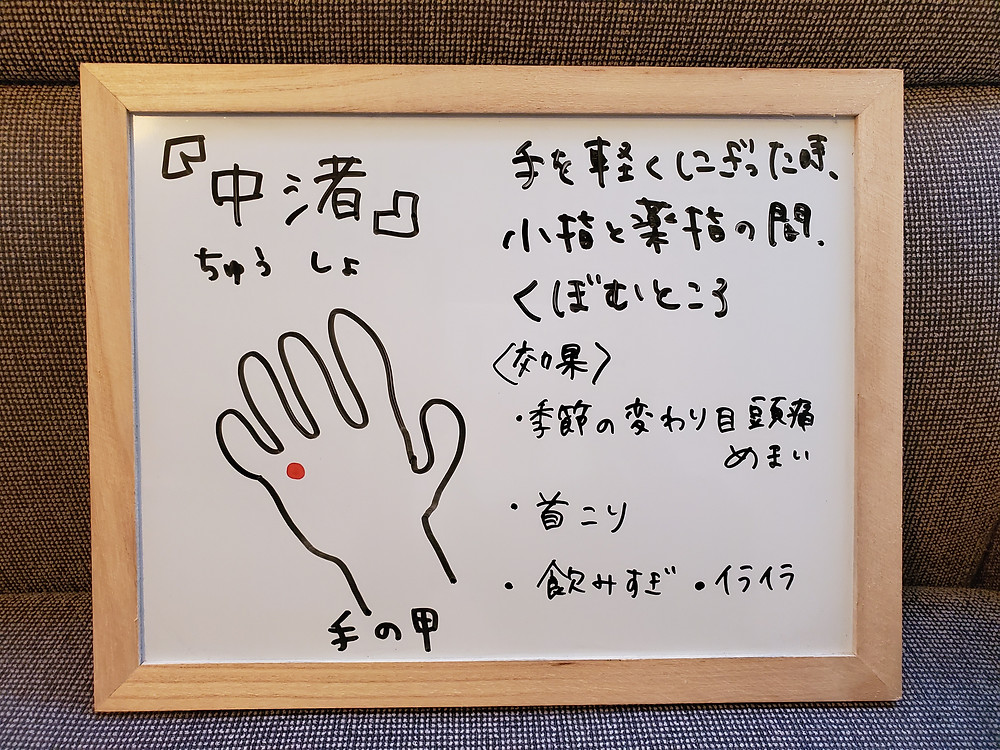 『中渚』
ちゅう しょ
手の甲
手を軽くにぎった時、
小指と薬指の間、
くぼむところ
〈効果〉
・季節の変わり目頭痛
めまい
・首こり
・飲みすぎ ・イライラ